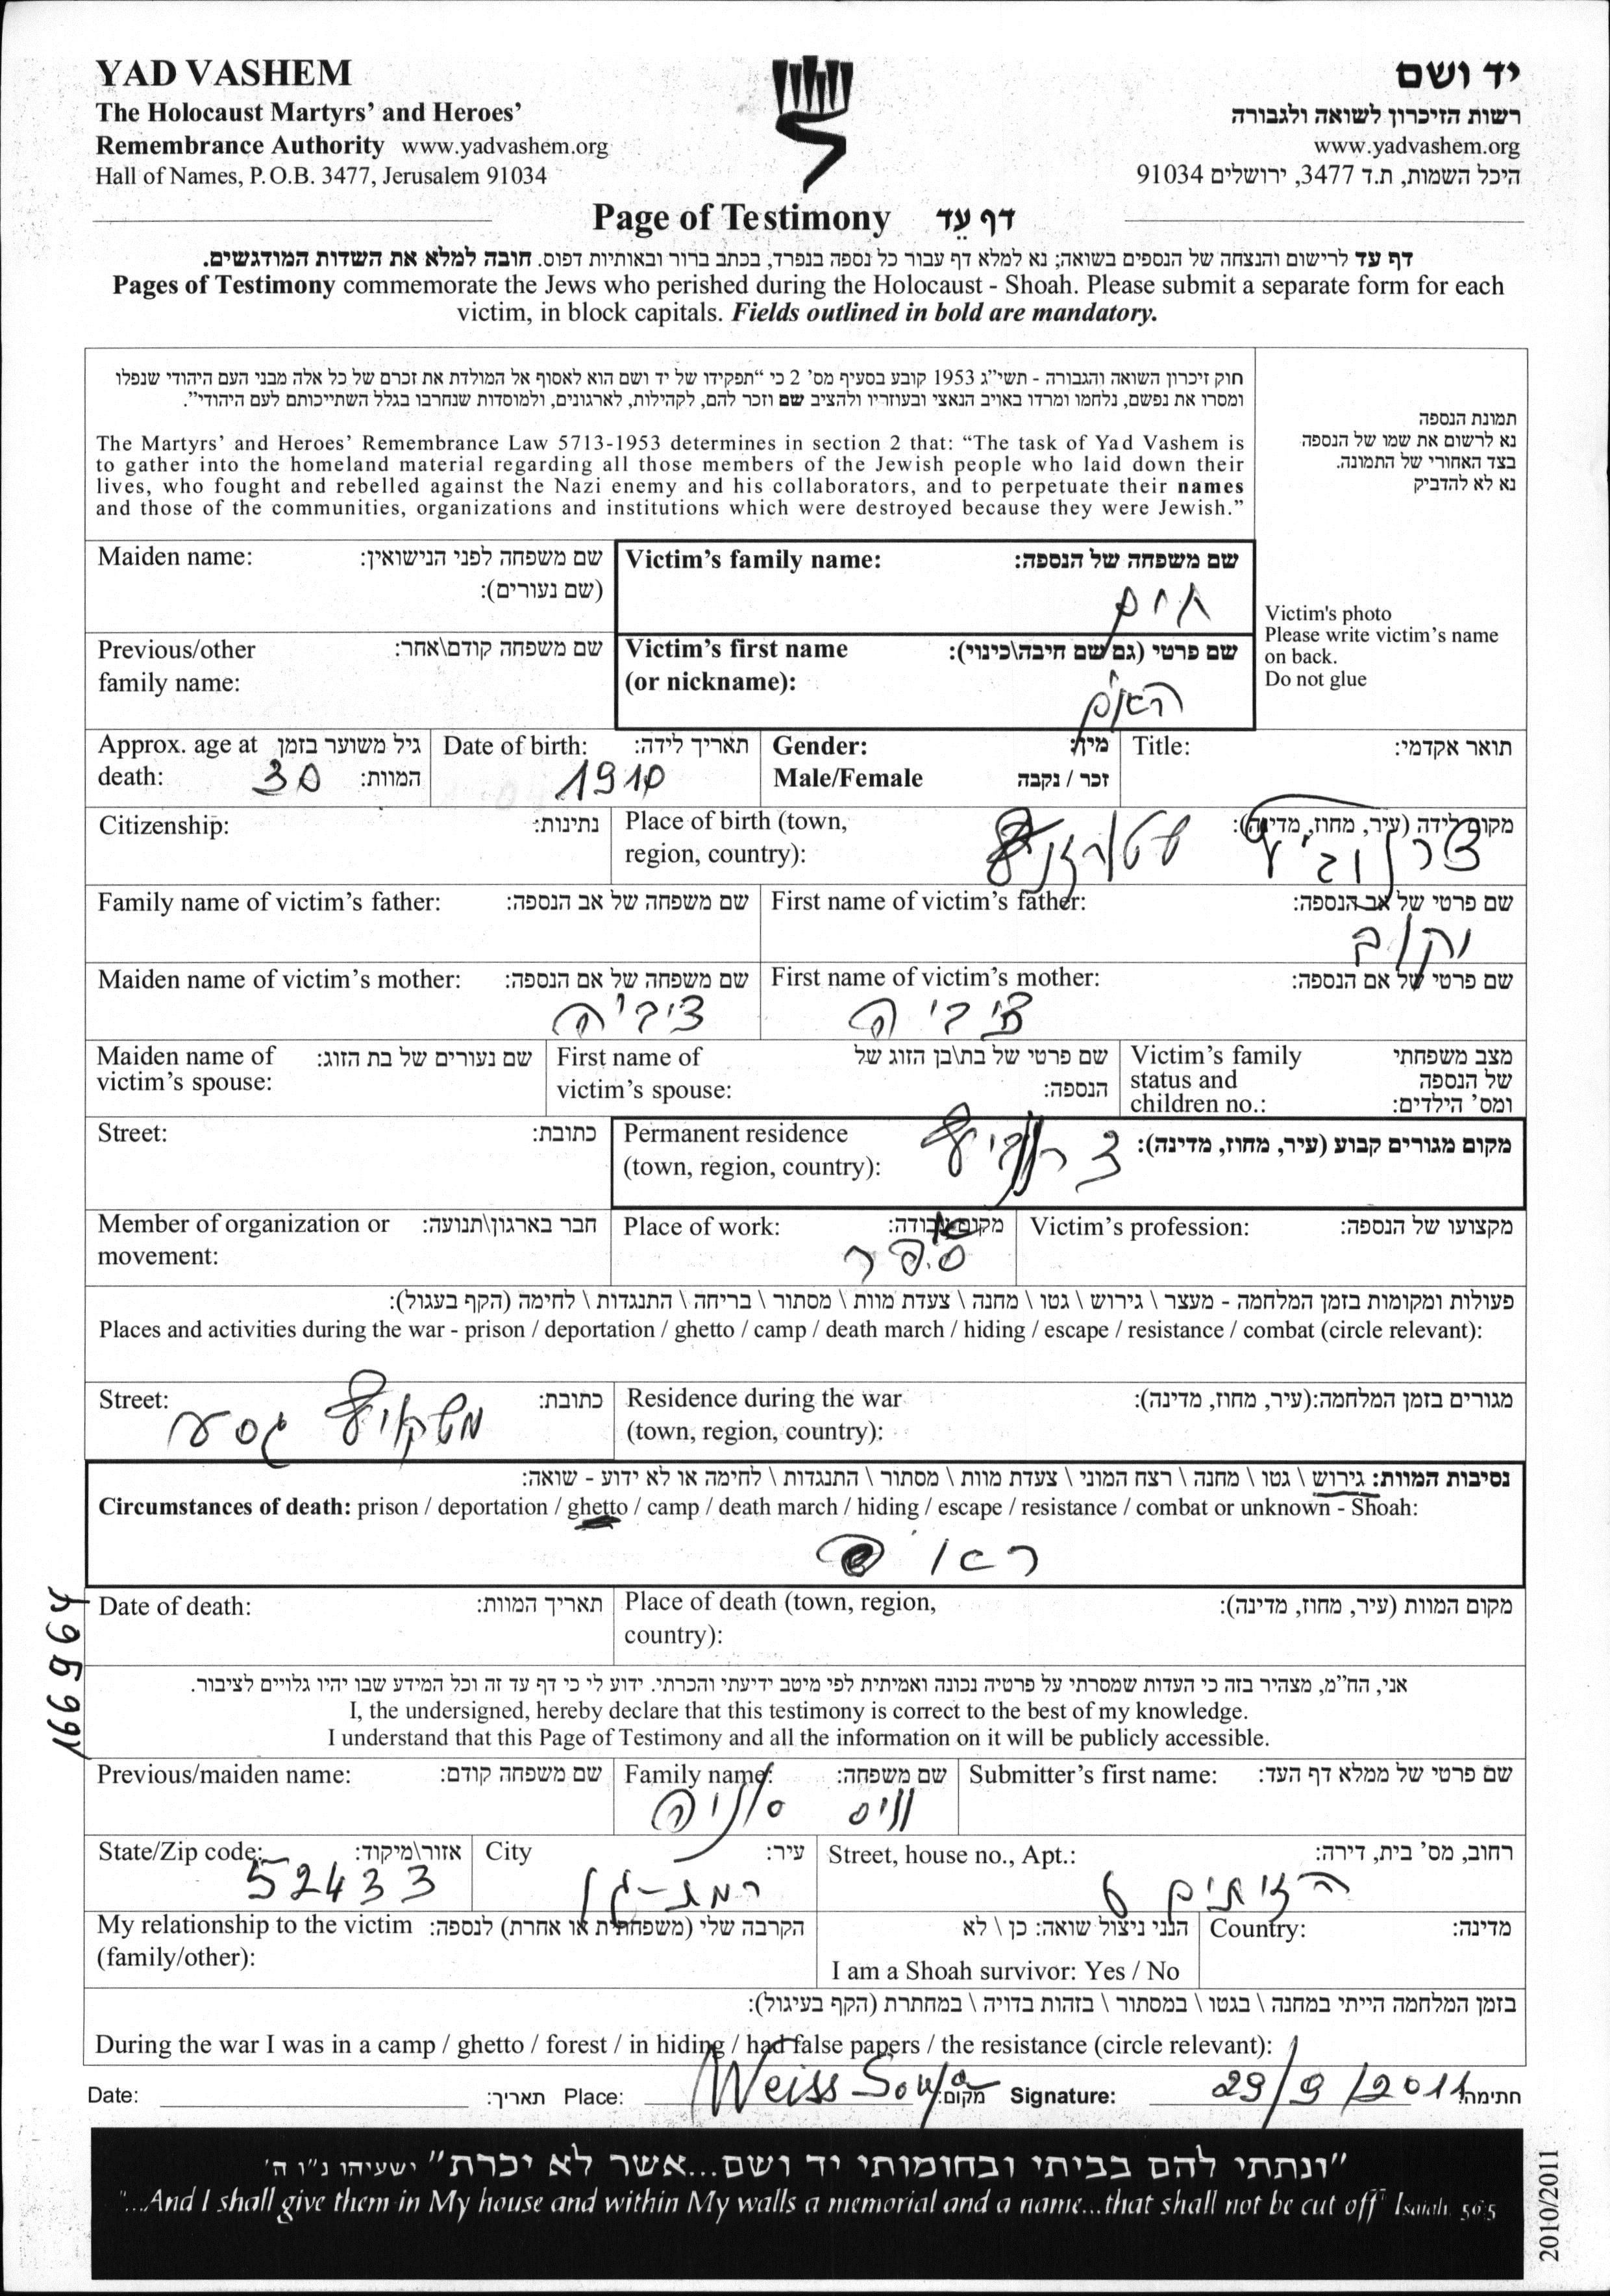 YAD VASHEM
The Holocaust Martyrs’ and Heroes’
Remembrance Authority www.yadvashem.org
Hall of Names, P.O.B. 3477, Jerusalem 91034
יד ושם
רשות הזיכרון לשואה ולגבורה
www.yadvashem.org
היכל השמות, ת.ד 3477, ירושלים 91034
Page of Testimony דף עֵד
דף עד לרישום והנצחה של הנספים בשואה; נא למלא דף עבור כל נספה בנפרד, בכתב ברור ובאותיות דפוס. חובה למלא את השדות המודגשים.
Pages of Testimony commemorate the Jews who perished during the Holocaust - Shoah. Please submit a separate form for each
victim, in block capitals. Fields outlined in bold are mandatory.
חוק זיכרון השואה והגבורה - תשי״ג 1953 קובע בסעיף מס׳ 2 כי “תפקידו של יד ושם הוא לאסוף אל המולדת את זכרם של כל אלה מבני העם היהודי שנפלו
ומסרו את נפשם, נלחמו ומרדו באויב הנאצי ובעוזריו ולהציב שם וזכר להם, לקהילות, לארגונים, ולמוסדות שנחרבו בגלל השתייכותם לעם היהודי”.
The Martyrs’ and Heroes’ Remembrance Law 5713-1953 determines in section 2 that: “The task of Yad Vashem is
to gather into the homeland material regarding all those members of the Jewish people who laid down their
lives, who fought and rebelled against the Nazi enemy and his collaborators, and to perpetuate their names
and those of the communities, organizations and institutions which were destroyed because they were Jewish.”
תמונת הנספה
נא לרשום את שמו של הנספה
בצד האחורי של התמונה.
נא לא להדביק
Victim's photo
Please write victim’s name
on back.
Do not glue
Maiden name: שם משפחה לפני הנישואין:
(שם נעורים):
Victim’s family name: שם משפחה של הנספה:
חיים
Previous/other שם משפחה קודם\אחר:
family name:
Victim’s first name שם פרטי (גם שם חיבה\כינוי):
(or nickname):
Approx. age at גיל משוער בזמן
death: 30 המוות:
Date of birth: תאריך לידה:
1910
Gender: מין:
Male/Female זכר / נקבה
Title: תואר אקדמי:
Citizenship: נתינות:
Place of birth (town, מקום לידה (עיר, מחוז, מדינה):
region, country):
צרנוביץ
Family name of victim’s father: שם משפחה של אב הנספה:
First name of victim’s father: שם פרטי של אב הנספה:
יעקוב
Maiden name of victim’s mother: שם משפחה של אם הנספה:
ציביה
First name of victim’s mother: שם פרטי של אם הנספה:
צביה
Maiden name of שם נעורים של בת הזוג:
victim’s spouse:
First name of שם פרטי של בת\בן הזוג של
victim’s spouse: הנספה:
Victim’s family מצב משפחתי
status and של הנספה
children no.: ומס׳ הילדים:
Street: כתובת:
Permanent residence מקום מגורים קבוע (עיר, מחוז, מדינה):
(town, region, country):
צרנוביץ
Member of organization or חבר בארגון\תנועה:
movement:
Place of work: מקום עבודה:
ספר
Victim’s profession: מקצועו של הנספה:
פעולות ומקומות בזמן המלחמה - מעצר \ גירוש \ גטו \ מחנה \ צעדת מוות \ מסתור \ בריחה \ התנגדות \ לחימה (הקף בעגול):
Places and activities during the war - prison / deportation / ghetto / camp / death march / hiding / escape / resistance / combat (circle relevant):
Street: כתובת:
גסע
Residence during the war מגורים בזמן המלחמה:(עיר, מחוז, מדינה):
(town, region, country):
נסיבות המוות: גירוש \ גטו \ מחנה \ רצח המוני \ צעדת מוות \ מסתור \ התנגדות \ לחימה או לא ידוע - שואה:
Circumstances of death: prison / deportation / ghetto / camp / death march / hiding / escape / resistance / combat or unknown - Shoah:
Date of death: תאריך המוות:
Place of death (town, region, מקום המוות (עיר, מחוז, מדינה):
country):
אני, הח״מ, מצהיר בזה כי העדות שמסרתי על פרטיה נכונה ואמיתית לפי מיטב ידיעתי והכרתי. ידוע לי כי דף עד זה וכל המידע שבו יהיו גלויים לציבור.
I, the undersigned, hereby declare that this testimony is correct to the best of my knowledge.
I understand that this Page of Testimony and all the information on it will be publicly accessible.
Previous/maiden name: שם משפחה קודם:
Family name: שם משפחה:
וויס סוניה
Submitter’s first name: שם פרטי של ממלא דף העד:
State/Zip code: אזור\מיקוד:
52433
City עיר:
רמת-גן
Street, house no., Apt.: רחוב, מס׳ בית, דירה:
הזיתים 6
My relationship to the victim הקרבה שלי (משפחתית או אחרת) לנספה:
(family/other):
הנני ניצול שואה: כן \ לא
I am a Shoah survivor: Yes / No
Country: מדינה:
בזמן המלחמה הייתי במחנה \ בגטו \ במסתור \ בזהות בדויה \ במחתרת (הקף בעיגול):
During the war I was in a camp / ghetto / forest / in hiding / had false papers / the resistance (circle relevant):
Date: תאריך: Place: Weiss Sonja מקום: Signature: 29/9/2011 חתימה:
”ונתתי להם בביתי ובחומותי יד ושם...אשר לא יכרת” ישעיהו נ״ו ה׳
"...And I shall give them in My house and within My walls a memorial and a name...that shall not be cut off" Isaiah 56:5
2010/2011